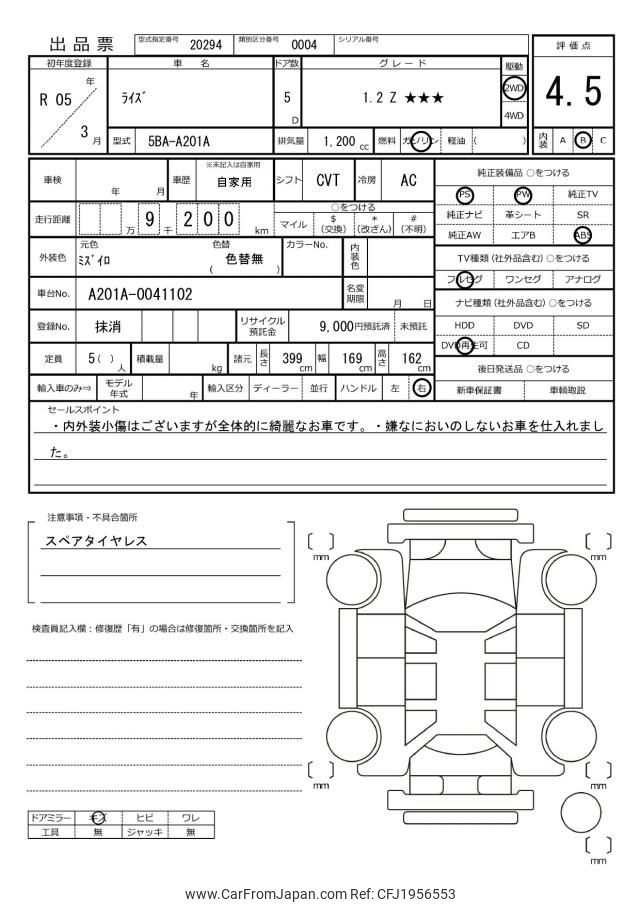 出品票 型式指定番号 20294 類別区分番号 0004 シリアル番号
評価点
4.5
初年度登録 車名 ドア数 グレード 駆動
R 05 年 3 月
ﾗｲｽﾞ
5 D
1.2 Z ★★★
2WD
4WD
型式 5BA-A201A 排気量 1,200 cc 燃料 ガソリン 軽油 ( )
内装 A B C
車検 年 月 車歴 ※未記入は自家用 自家用 シフト CVT 冷房 AC
走行距離 万 9 千 2 0 0 km
○をつける
マイル $ (交換) * (改ざん) # (不明)
外装色 元色 ﾐｽﾞｲﾛ 色替 ( 色替無 ) カラーNo. 内装色
車台No. A201A-0041102 名変期限 月 日
登録No. 抹消 リサイクル預託金 9,000円預託済 未預託
定員 5 ( ) 人 積載量 kg 諸元 長さ 399 cm 幅 169 cm 高さ 162 cm
輸入車のみ⇒ モデル年式 年 輸入区分 ディーラー 並行 ハンドル 左 右
純正装備品 ○をつける
PS PW 純正TV
純正ナビ 革シート SR
純正AW エアB ABS
TV種類(社外品含む) ○をつける
フルセグ ワンセグ アナログ
ナビ種類(社外品含む) ○をつける
HDD DVD SD
DVD再生可 CD
後日発送品 ○をつける
新車保証書 車輌取説
セールスポイント
・内外装小傷はございますが全体的に綺麗なお車です。・嫌なにおいのしないお車を仕入れまし
た。
注意事項・不具合箇所
スペアタイヤレス
検査員記入欄：修復歴「有」の場合は修復箇所・交換箇所を記入
〔 〕 mm
〔 〕 mm
〔 〕 mm
〔 〕 mm
〔 〕 mm
ドアミラー キズ ヒビ ワレ
工具 無 ジャッキ 無
www.CarFromJapan.com Ref: CFJ1956553